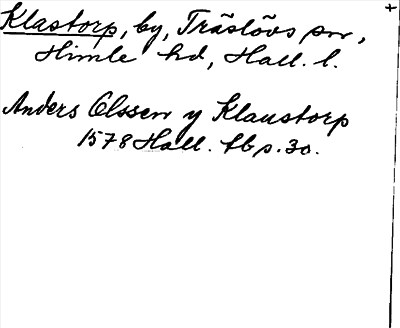 Klastorp, by, Träslövs sn,
Himle hd, Hall. l.
Anders Olssen y Klaustorp
1578 Hall. tb s. 30.